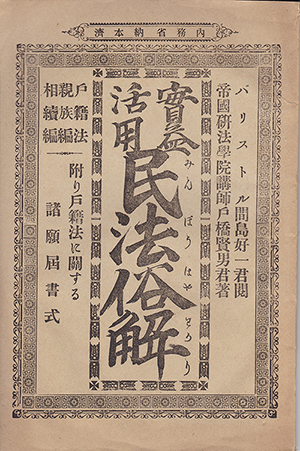 內務省納本濟
バリストル間島好一君閲
帝國研法學院講師戶橋賢男君著
實益
活用
民法俗解
みんぽうはやわかり
戶籍法
親族編
相續編
附り戶籍法に關する
諸願屆書式